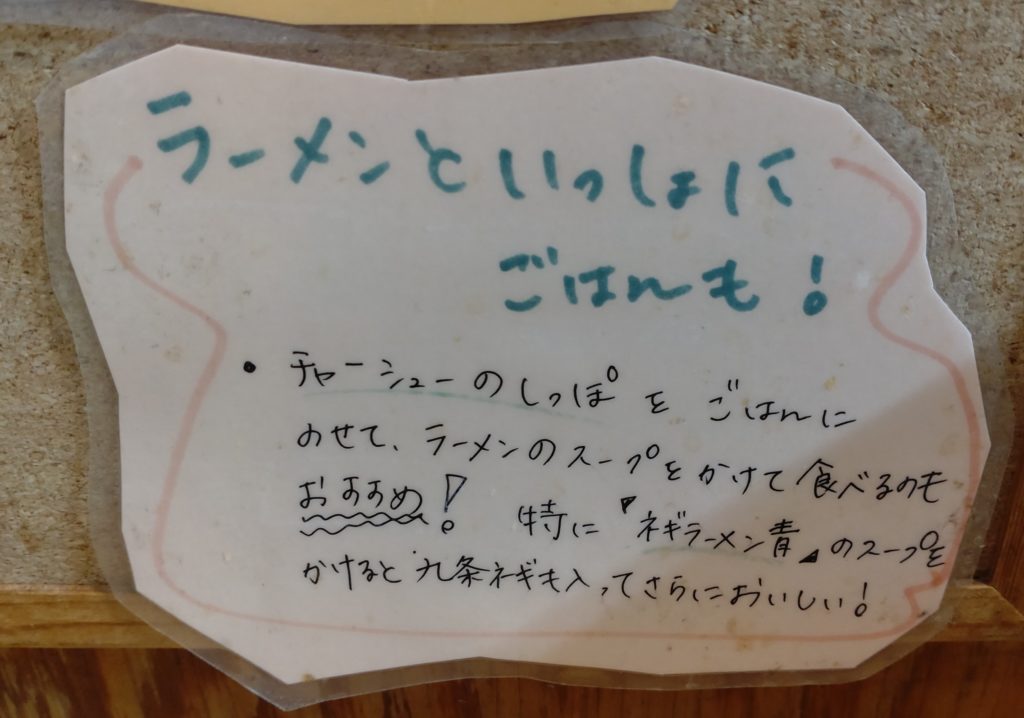 ラーメンといっしょに
ごはんも!
・チャーシューのしっぽをごはんに
のせて、ラーメンのスープをかけて食べるのも
おすすめ! 特に『ネギラーメン青』のスープを
かけると九条ネギも入ってさらにおいしい!